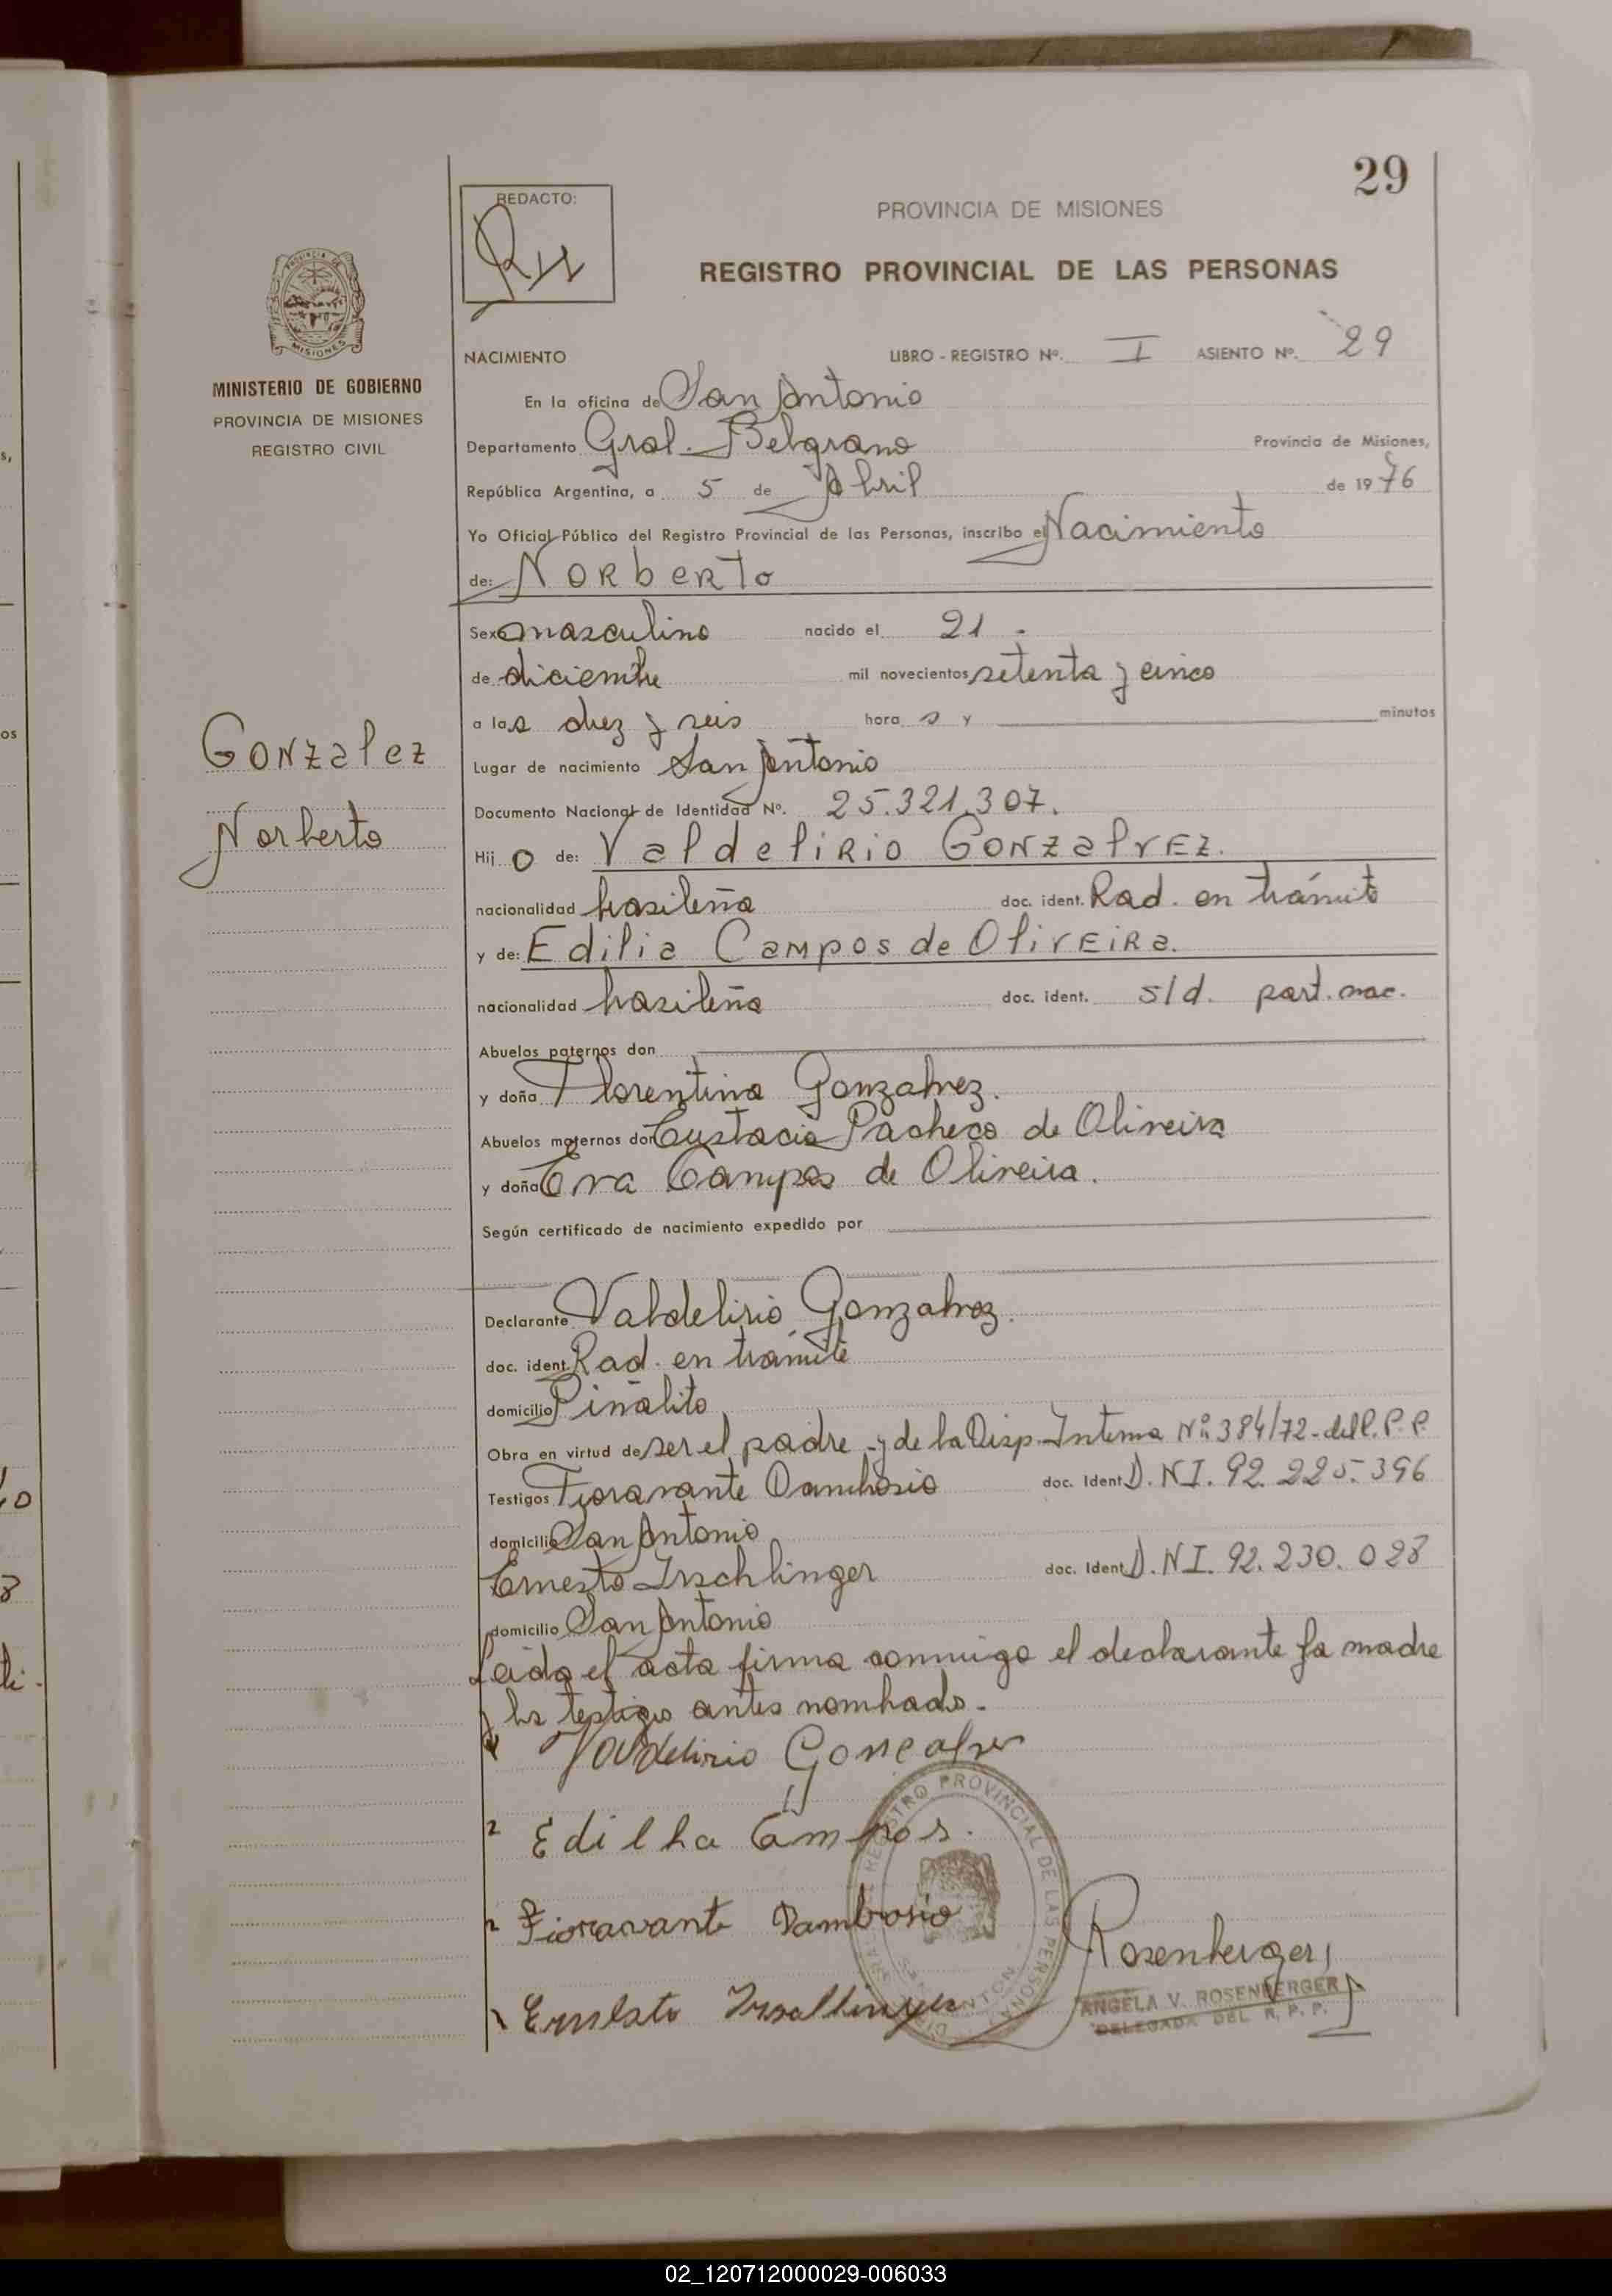 29
REDACTO:
PROVINCIA DE MISIONES
REGISTRO PROVINCIAL DE LAS PERSONAS
PROVINCIA DE
MISIONES
MINISTERIO DE GOBIERNO
PROVINCIA DE MISIONES
REGISTRO CIVIL
NACIMIENTO LIBRO - REGISTRO Nº. I ASIENTO Nº. 29
En la oficina de San Antonio
Departamento Gral. Belgrano Provincia de Misiones,
República Argentina, a 5 de Abril de 1976
Yo Oficial Público del Registro Provincial de las Personas, inscribo el Nacimiento
de: Norberto
Sexo masculino nacido el 21 -
de diciembre mil novecientos setenta y cinco
a las diez y seis horas y minutos
Gonzalez
Norberto
Lugar de nacimiento San Antonio
Documento Nacional de Identidad Nº. 25.321.307.
Hijo de: Valdelirio Gonzalvez.
nacionalidad brasileña doc. ident. Rad. en trámite
y de: Edilia Campos de Oliveira.
nacionalidad brasileña doc. ident. s/d. part. nac.
Abuelos paternos don
y doña Florentina Gonzalvez.
Abuelos maternos don Eustacio Pacheco de Oliveira
y doña Eva Campos de Oliveira.
Según certificado de nacimiento expedido por
Declarante Valdelirio Gonzalvez.
doc. ident. Rad. en trámite
domicilio Piñalito
Obra en virtud de ser el padre y de la Disp. Interna Nº 384/72-del R.P.P.
Testigos Fioravante Dambrosio doc. Ident. D.N.I. 92.225.396
domicilio San Antonio
Ernesto Irschlinger doc. Ident. D.N.I. 92.230.028
domicilio San Antonio
Leida el acta firma conmigo el declarante la madre
y los testigos antes nombrado.-
Valdelirio Gonçalves
Edilha Campos.
Fioravante Dambrosio
Rosenberger
Ernesto
ANGELA V. ROSENBERGER
DELEGADA DEL R. P. P.
REGISTRO PROVINCIAL DE LAS PERSONAS
02_120712000029-006033